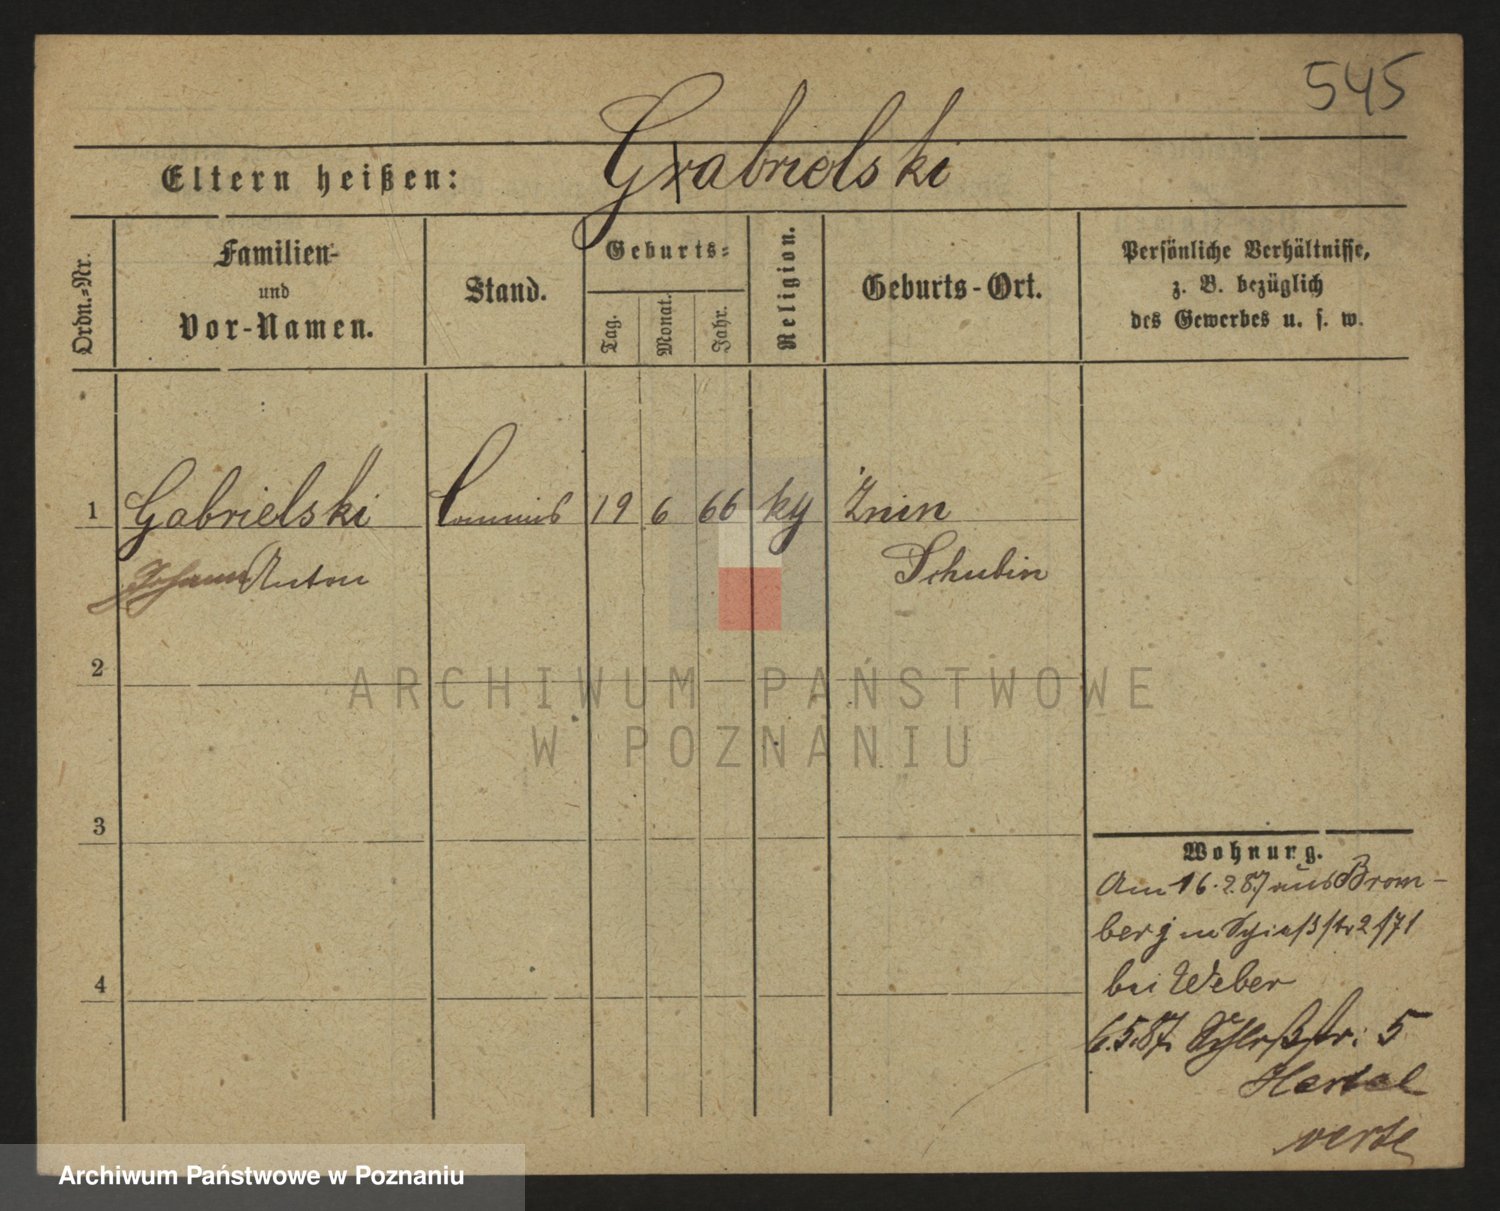 545
Gabrielski
Eltern heißen:
Ordn.-Nr.
Familien-
und
Vor-Namen.
Stand.
Geburts-
Tag.
Monat.
Jahr.
Religion.
Geburts-Ort.
Persönliche Verhältnisse,
z. B. bezüglich
des Gewerbes u. s. w.
1 Gabrielski Commis 19 6 66 kg Znin
Johann Anton Schubin
2
ARCHIWUM PAŃSTWOWE
W POZNANIU
3
4
Wohnung.
Am 16.2.87 aus Brom-
berg Schießstr 2
bei Weber
6.5.87. Schloßstr. 5
Hertel
verte
Archiwum Państwowe w Poznaniu